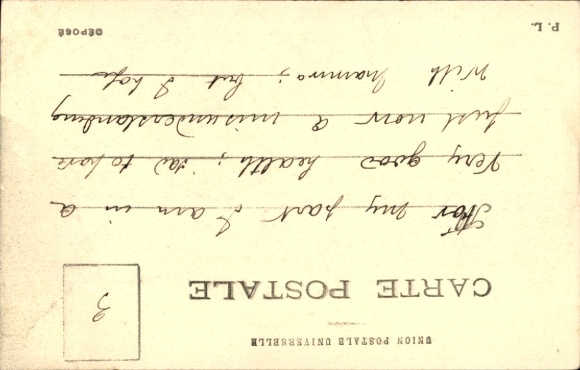 UNION POSTALE UNIVERSELLE
CARTE POSTALE
3
For my part I am in a
Very good health; to
just now a misunderstanding
With mamma; but I hope
P. L.
DÉPOSÉ